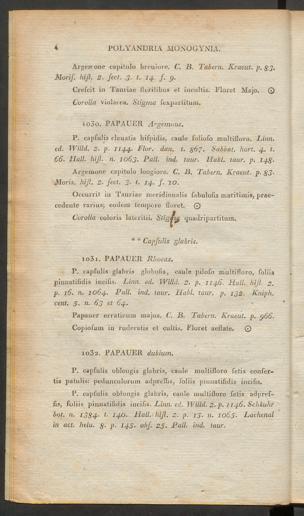 4 POLYANDRIA MONOGYNIA.
Argemone capitulo breuiore. C. B. Tabern. Kraeut. p. 83.
Moris. hist. 2. sect. 3. t. 14. f. 9.
Crescit in Tauriae sterilibus et incultis. Floret Majo. ⊙
Corolla violacea. Stigma sexpartitum.
1030. PAPAUER Argemone.
P. capsulis clauatis hispidis, caule folioso multifloro. Linn.
ed. Willd. 2. p. 1144. Flor. dan. t. 867. Sabbat. hort. 4. t.
66. Hall. hist. n. 1063. Pall. ind. taur. Habl. taur. p. 148.
Argemone capitulo longiore. C. B. Tabern. Kraeut. p. 83.
Moris. hist. 2. sect. 3. t. 14. f. 10.
Occurrit in Tauriae meridionalis sabulosis maritimis, prae-
cedente rarius; eodem tempore floret. ⊙
Corolla coloris lateritii. Stigma quadripartitum.
** Capsulis glabris.
1031. PAPAUER Rhoeas.
P. capsulis glabris globosis, caule piloso multifloro, foliis
pinnatifidis incisis. Linn. ed. Willd. 2. p. 1146. Hall. hist. 2.
p. 16. n. 1064. Pall. ind. taur. Habl. taur. p. 132. Kniph.
cent. 5. n. 63 et 64.
Papauer erraticum majus. C. B. Tabern. Kraeut. p. 966.
Copiosum in ruderatis et cultis. Floret aestate. ⊙
1032. PAPAUER dubium.
P. capsulis oblongis glabris, caule multifloro setis confer-
tis patulis: pedunculorum adpressis, foliis pinnatifidis incisis.
P. capsulis oblongis glabris, caule multifloro setis adpres-
sis, foliis pinnatifidis incisis. Linn. ed. Willd. 2. p. 1146. Schkuhr
bot. n. 1384. t. 140. Hall. hist. 2. p. 15. n. 1065. Lachenal
in act. helu. 8. p. 145. obs. 25. Pall. ind. taur.